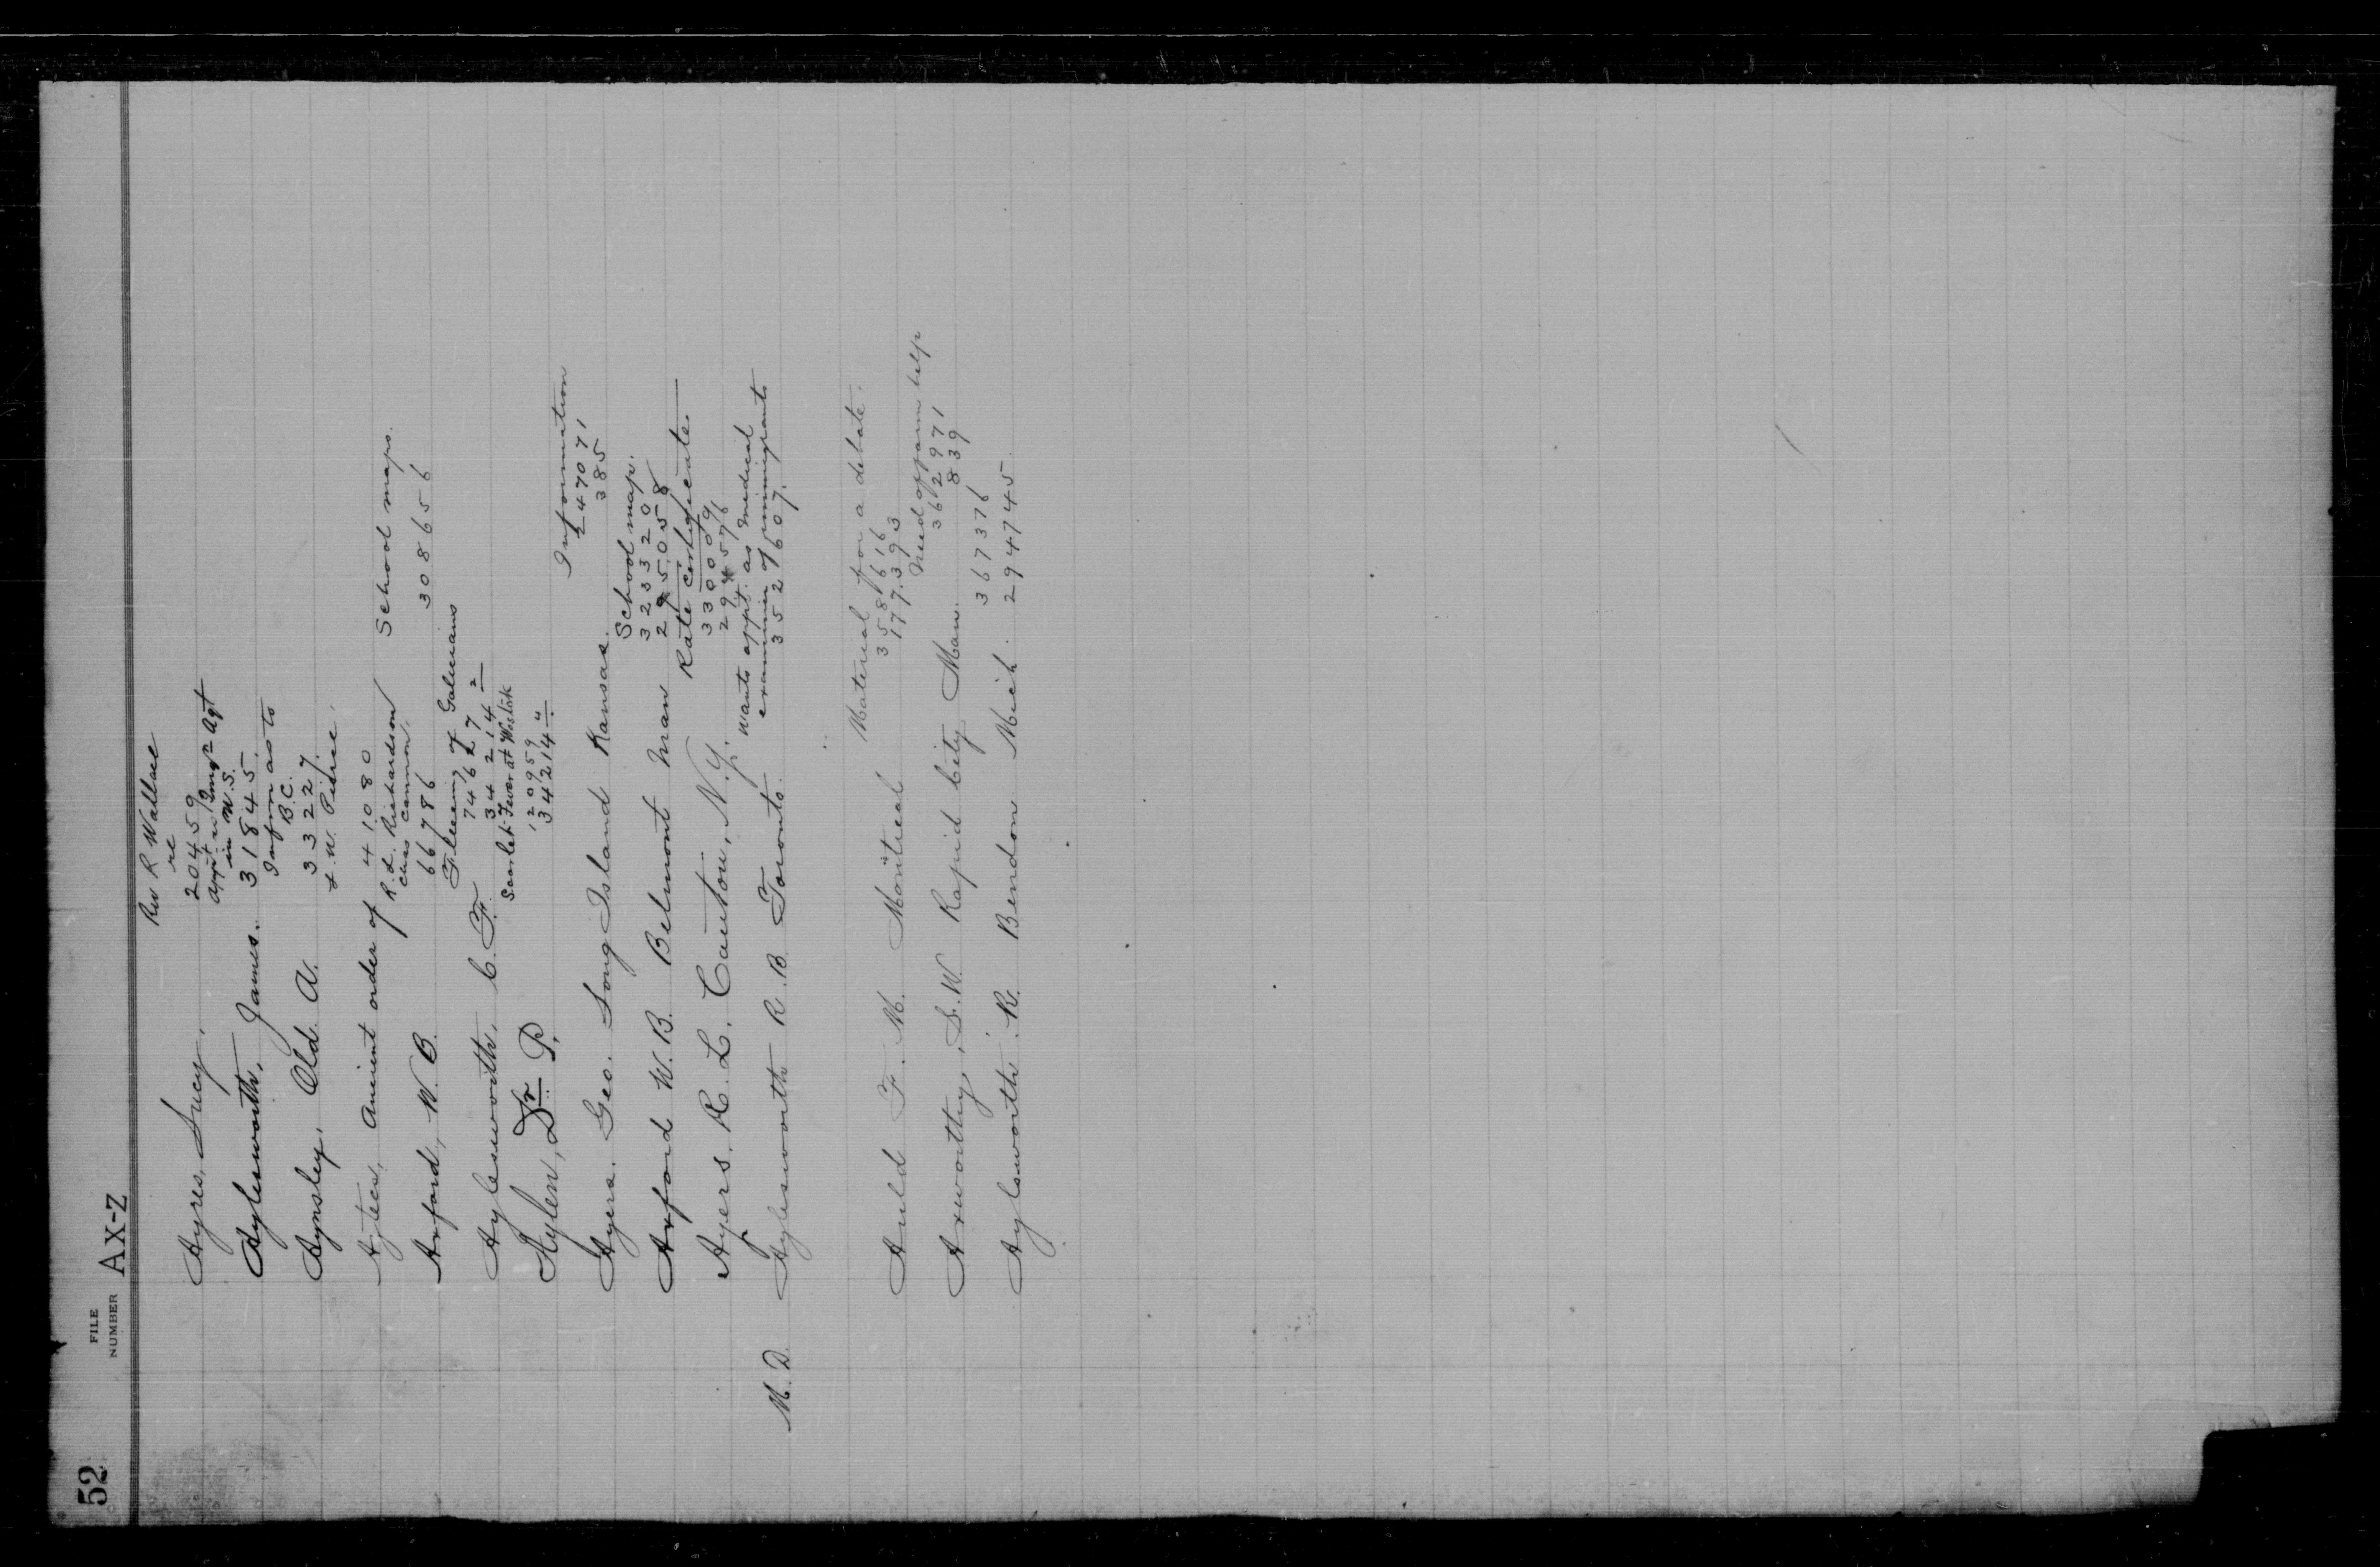 52
FILE NUMBER AX-Z
Rev R Wallace
re
Ayres, Lucy, 20459
Appt as Imgn Agt
in W.S.
Aylesworth, James. 31845.
Inform as to
B.C.
Aynsley, Old A. 33227.
J. W. Peirce.
Aztecs, Ancient order of 41080
R. L. Richardson School maps.
Chas Cannon.
Axford, W. B. 66786 308656
Fleecing of Galicians
Aylesworth, C. F. 74627 2
34214
Scarlet Fever at Wostok
120959
Aylen, Dr. P. 34214 4
Information
247071
Ayers. Geo. Long Island Kansas. 385
School map.
323320
Axford W. B. Belmont Man 295058
Rate certificate
33000
Ayers. R. L. Canton, N.Y. 294576
wants appt. as Medical
examiner of immigrants
M.D. Aylesworth R. B. Toronto. 352607.
Material for a debate.
358616
Auld F. M. Montreal 177393
Need of farm help
362971
839
Axworthy, S. W. Rapid City Man. 367376
Aylsworth. R. Bendon Mich. 294745.